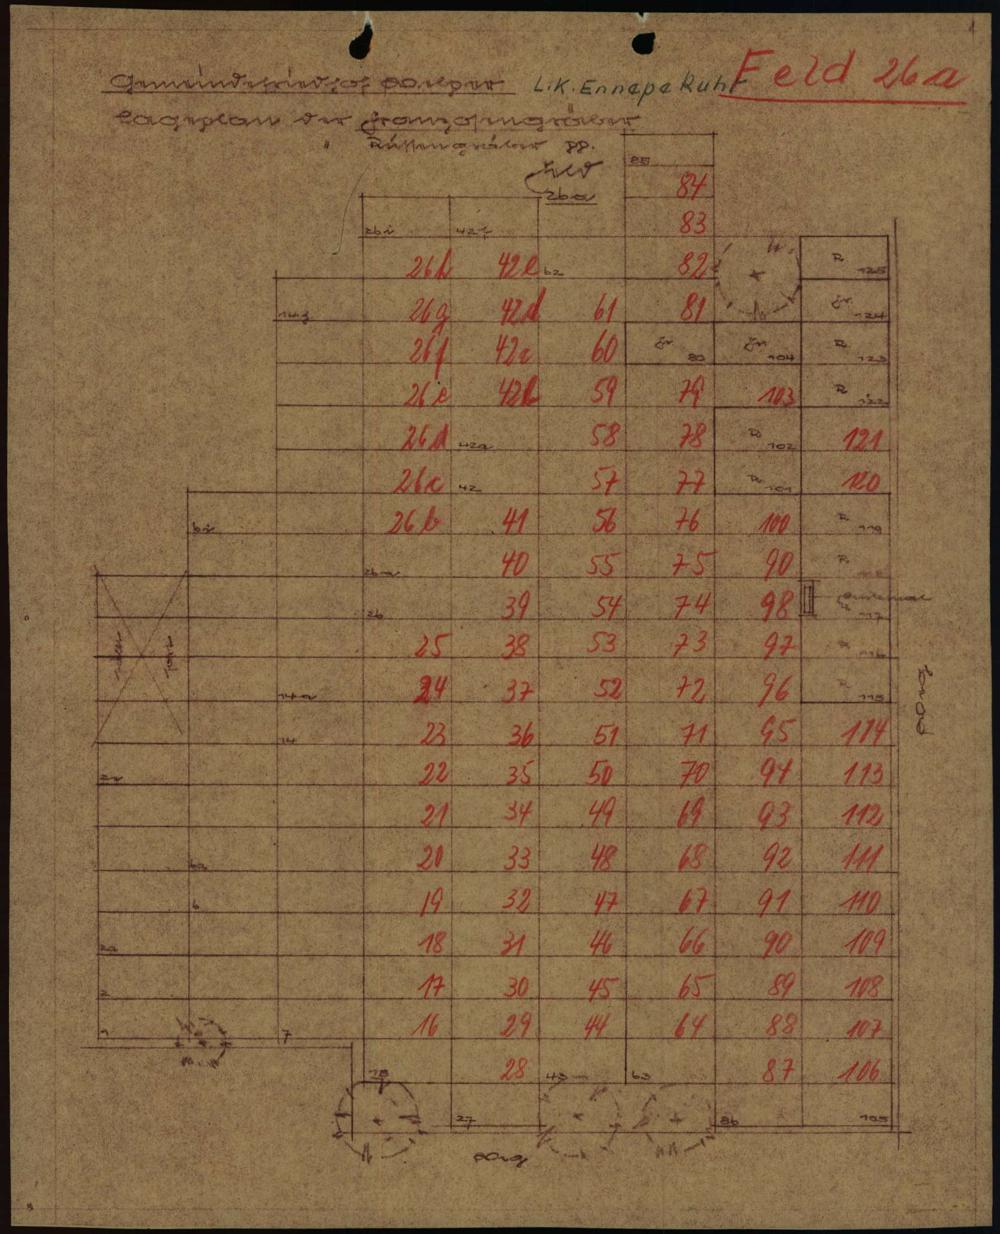 Gemeindefriedhof Volper L.K. Ennepe Ruhr Feld 26a
Lageplan der Franzosengräber
" Russengräber pp.
Feld
26a
85
84
26i 42f 83
26h 42e 62 82 R 125
14g 26g 42d 61 81 Fr. 124
26f 42c 60 Fr 80 Fr 104 R 123
26e 42b 59 79 103 R 122
26d 42a 58 78 R 102 121
26c 42 57 77 R 101 120
6i 26b 41 56 76 100 R 119
26a 40 55 75 90 R.
26 39 54 74 98 Denkmal 117
25 38 53 73 97 R 116
14a 24 37 52 72 96 R 115
14 23 36 51 71 95 114
2c 22 35 50 70 94 113
21 34 49 69 93 112
6a 20 33 48 68 92 111
6 19 32 47 67 91 110
2a 18 31 46 66 90 109
2 17 30 45 65 89 108
1 7 16 29 44 64 88 107
15 28 43 63 87 106
27 86 105
Weg